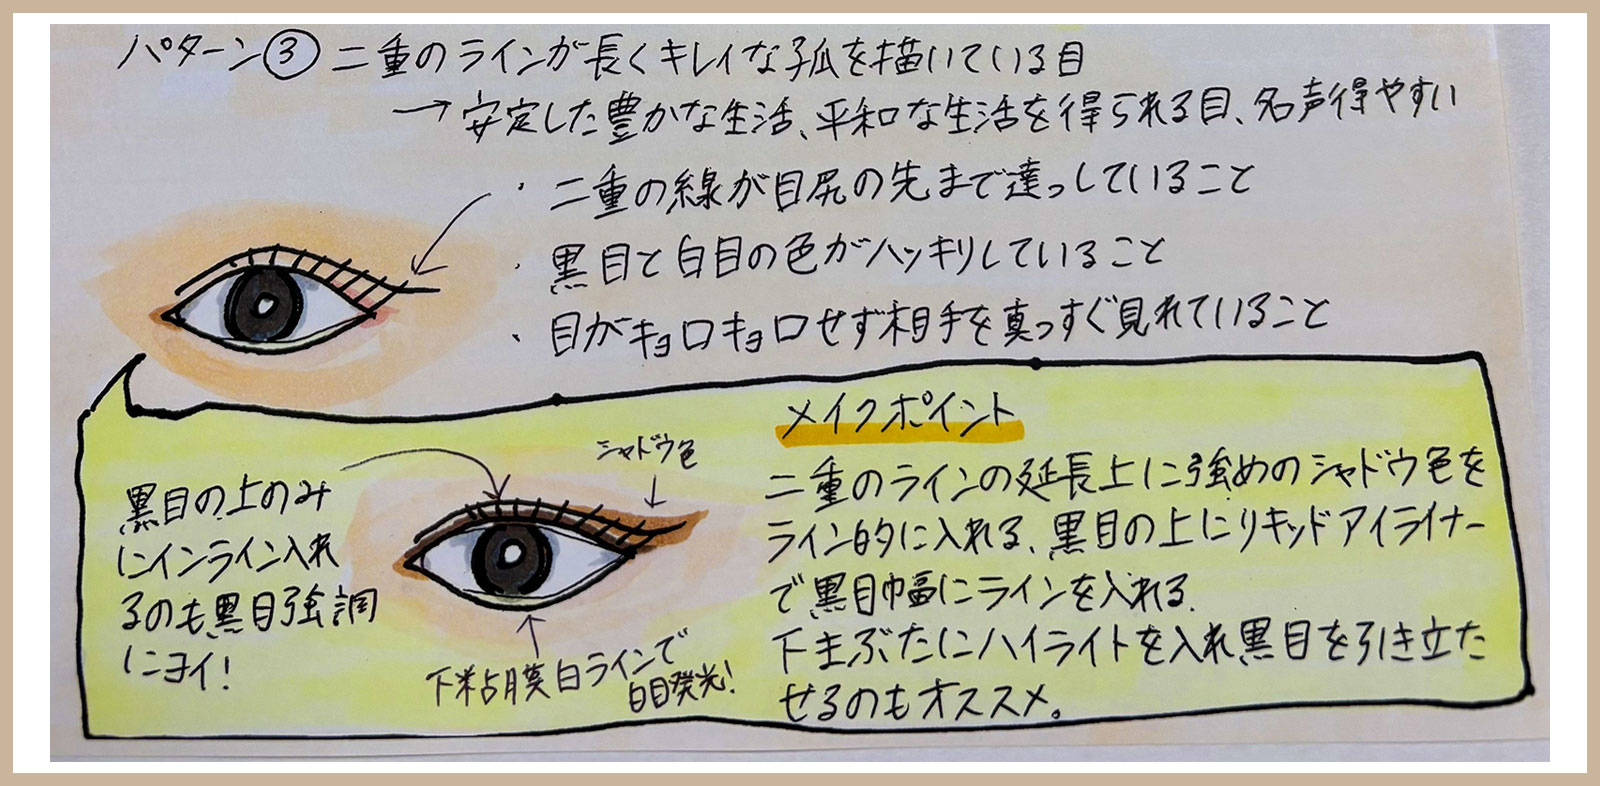 パターン③ 二重のラインが長くキレイな孤を描いている目
→安定した豊かな生活、平和な生活を得られる目、名声得やすい
・二重の線が目尻の先まで達っしていること
・黒目と白目の色がハッキリしていること
・目がキョロキョロせず相手を真っすぐ見れていること
メイクポイント
二重のラインの延長上に強めのシャドウ色を
ライン的に入れる、黒目の上にリキッドアイライナー
で黒目巾幅にラインを入れる。
下まぶたにハイライトを入れ黒目を引き立た
せるのもオススメ。
シャドウ色
黒目の上のみ
にインライン入れ
るのも黒目強調
にヨイ!
下粘膜白ラインで
白目発光!